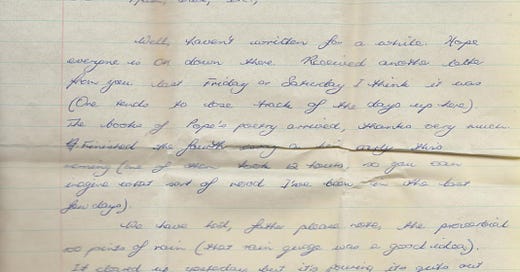 Well, haven't written for a while. Hope
everyone is OK down there. Received another letter
from you last Friday or Saturday I think it was
(One tends to lose track of the days up here).
The books of Pope's poetry arrived, thanks very much.
Finished the fourth essay on early this
morning (one of them took 12 hours, so you can
imagine what sort of mood I've been in the last
few days).
We have had, father please note, the proverbial
00 points of rain (that rain guage was a good idea).
It cleared up yesterday but it's pouring it's guts out